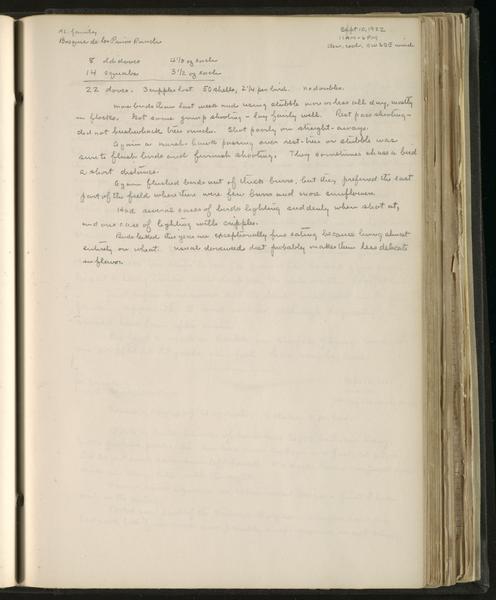 Bosque de los Pinos Ranch
Sept 10, 1922
11 AM - 6 PM
Clear, cool, SW & SE wind
8 old doves 4 1/3 oz each
14 squabs 3 1/2 oz each
22 doves. 3 cripples lost 50 shells, 2 1/4 per bird. no doubles.
more birds than last week and using stubble more or less all day, mostly
in flocks. Got some jump shooting - lay fairly well. Best pass shooting -
did not bushwhack tree much. Shot poorly on straight-aways.
Again a marsh hawk passing over rest-trees or stubble was
sure to flush birds and furnish shooting. They sometimes chase a bird
a short distance.
Again flushed birds out of thick burrs, but they preferred the east
part of the field where there were few burrs and more sunflowers.
Had several cases of birds lighting suddenly when shot at,
and one case of lighting with cripples.
Birds killed this year are exceptionally fine eating because living almost
entirely on wheat. usual doveweed diet probably makes them less delicate
in flavor.